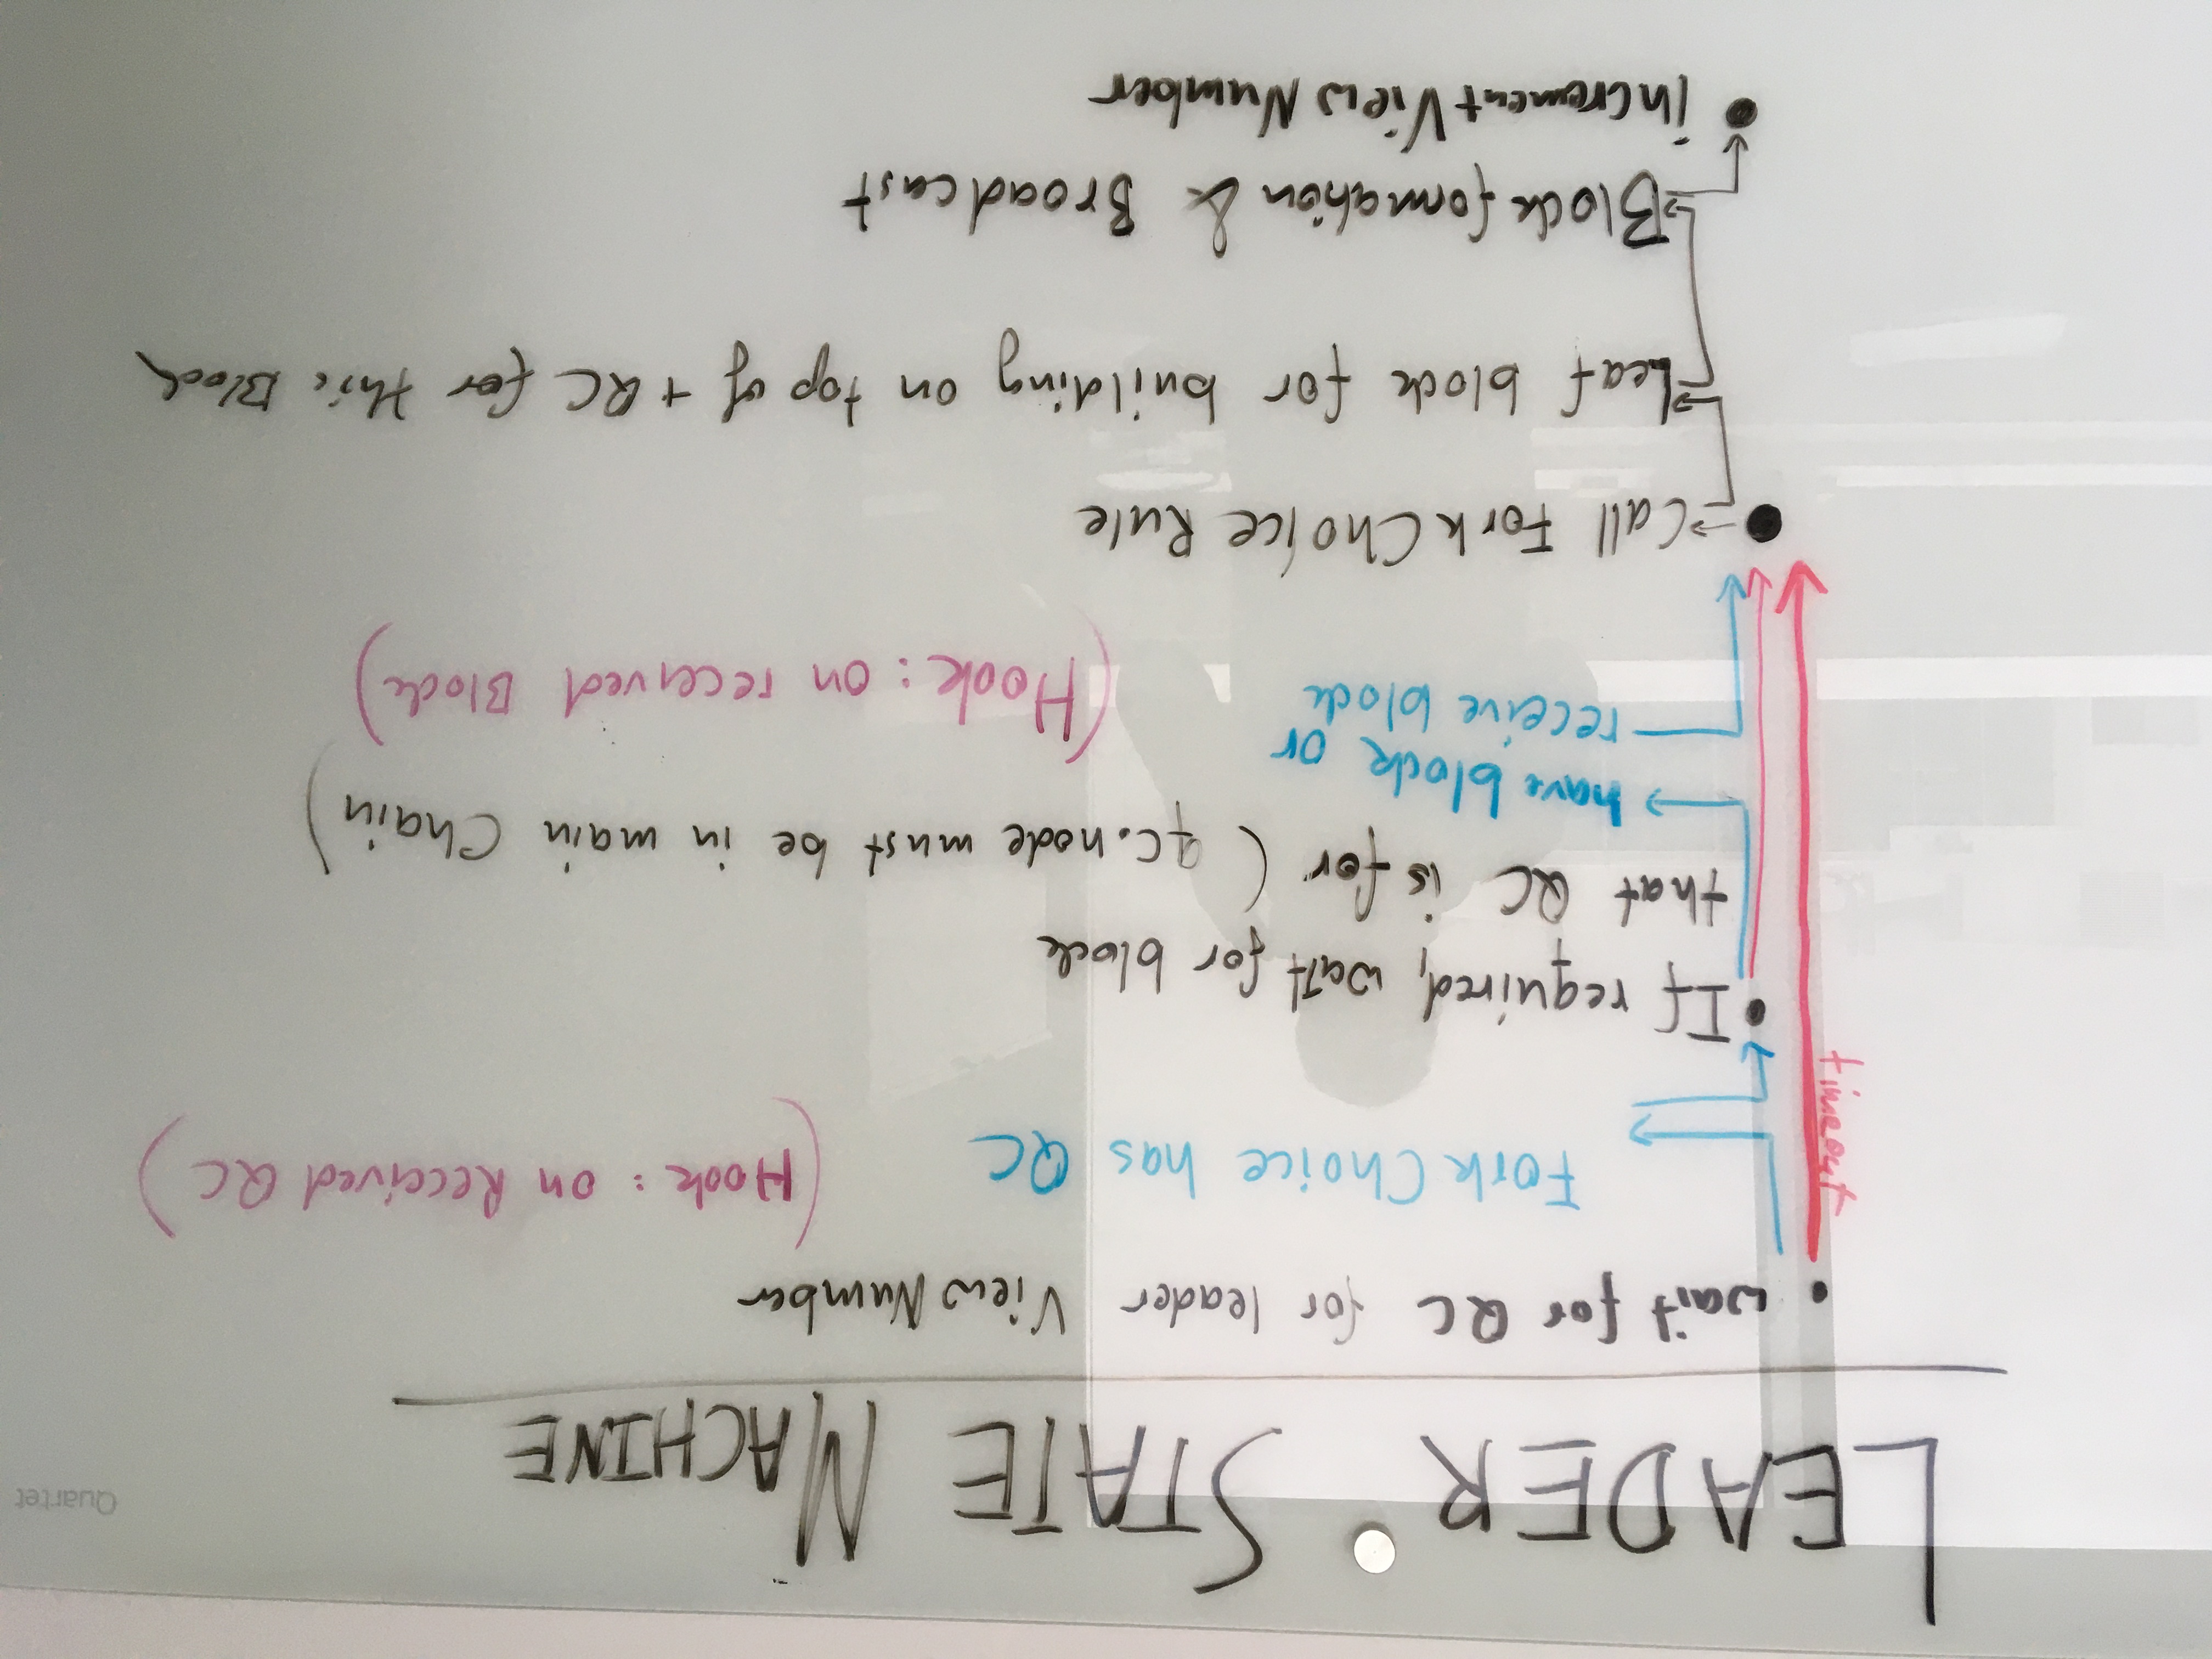 LEADER STATE MACHINE
Quartet
• wait for QC for leader ViewNumber
timeout
ForkChoice has QC (Hook: on Received QC)
• If required, wait for block
that QC is for (qc.node must be in main Chain)
have block or
receive block (Hook: on received Block)
• → Call ForkChoice Rule
Leaf block for building on top of + QC for this Block
Block formation & Broadcast
• increment ViewNumber